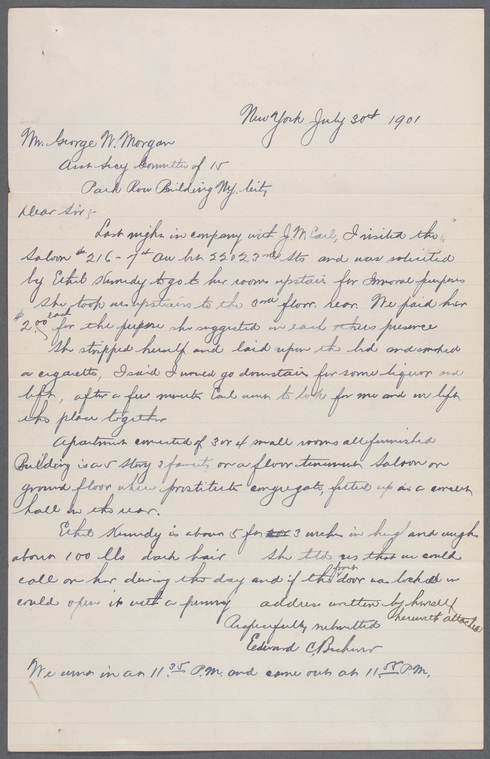 New York July 30th 1901
Mr. George W. Morgan
Asst Secy Committee of 15
Park Row Building N.Y. City
Dear Sir;-
Last night in company with J. M. Earl, I visited the
Saloon #216-7th Ave bet 22 & 23rd Sts and was solicited
by Ethel Kennedy to go to her room upstair for Immoral purposes
She took us upstairs to the 3rd floor. rear. We paid her
$2.00 each for the purpose she suggested in each others presence
She stripped herself and laid upon the bed and smoked
a cigarette, I said I would go downstair for some liquor and
left, after a few minutes Earl went to look for me and we left
the place together
Apartment consisted of 3 or 4 small rooms all furnished
Building is a 5 story 3 family on a floor tenement Saloon on
ground floor where prostitutes congregate, fitted up as a concert
hall in the rear.
Ethel Kennedy is about 5 foot 3 inches in heigh and weighs
about 100 lbs dark hair She told us that we could
call on her during the day and if the front door was locked we
could open it with a penny address written by herself
herewith attached
Respectfully submitted
Edward C.
We went in at 11 35 P.M. and came out at 11 P.M.